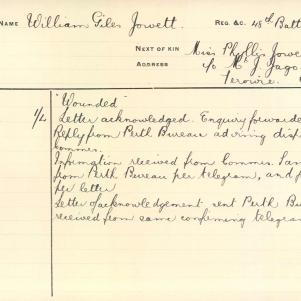 NAME William Giles Jowett. REG. &C. 48th Batt
NEXT OF KIN Miss Phyllis Jowe
ADDRESS c/o Mr J. Jago.
Terowie.
"Wounded"
Letter acknowledged. Enquiry forwarde
Reply from Perth Bureau advising disp
Commrs.
Information received from Commrs.
from Perth Bureau per telegram, and
per letter
Letter of acknowledgement sent Perth Bu
received from same confirming telegra